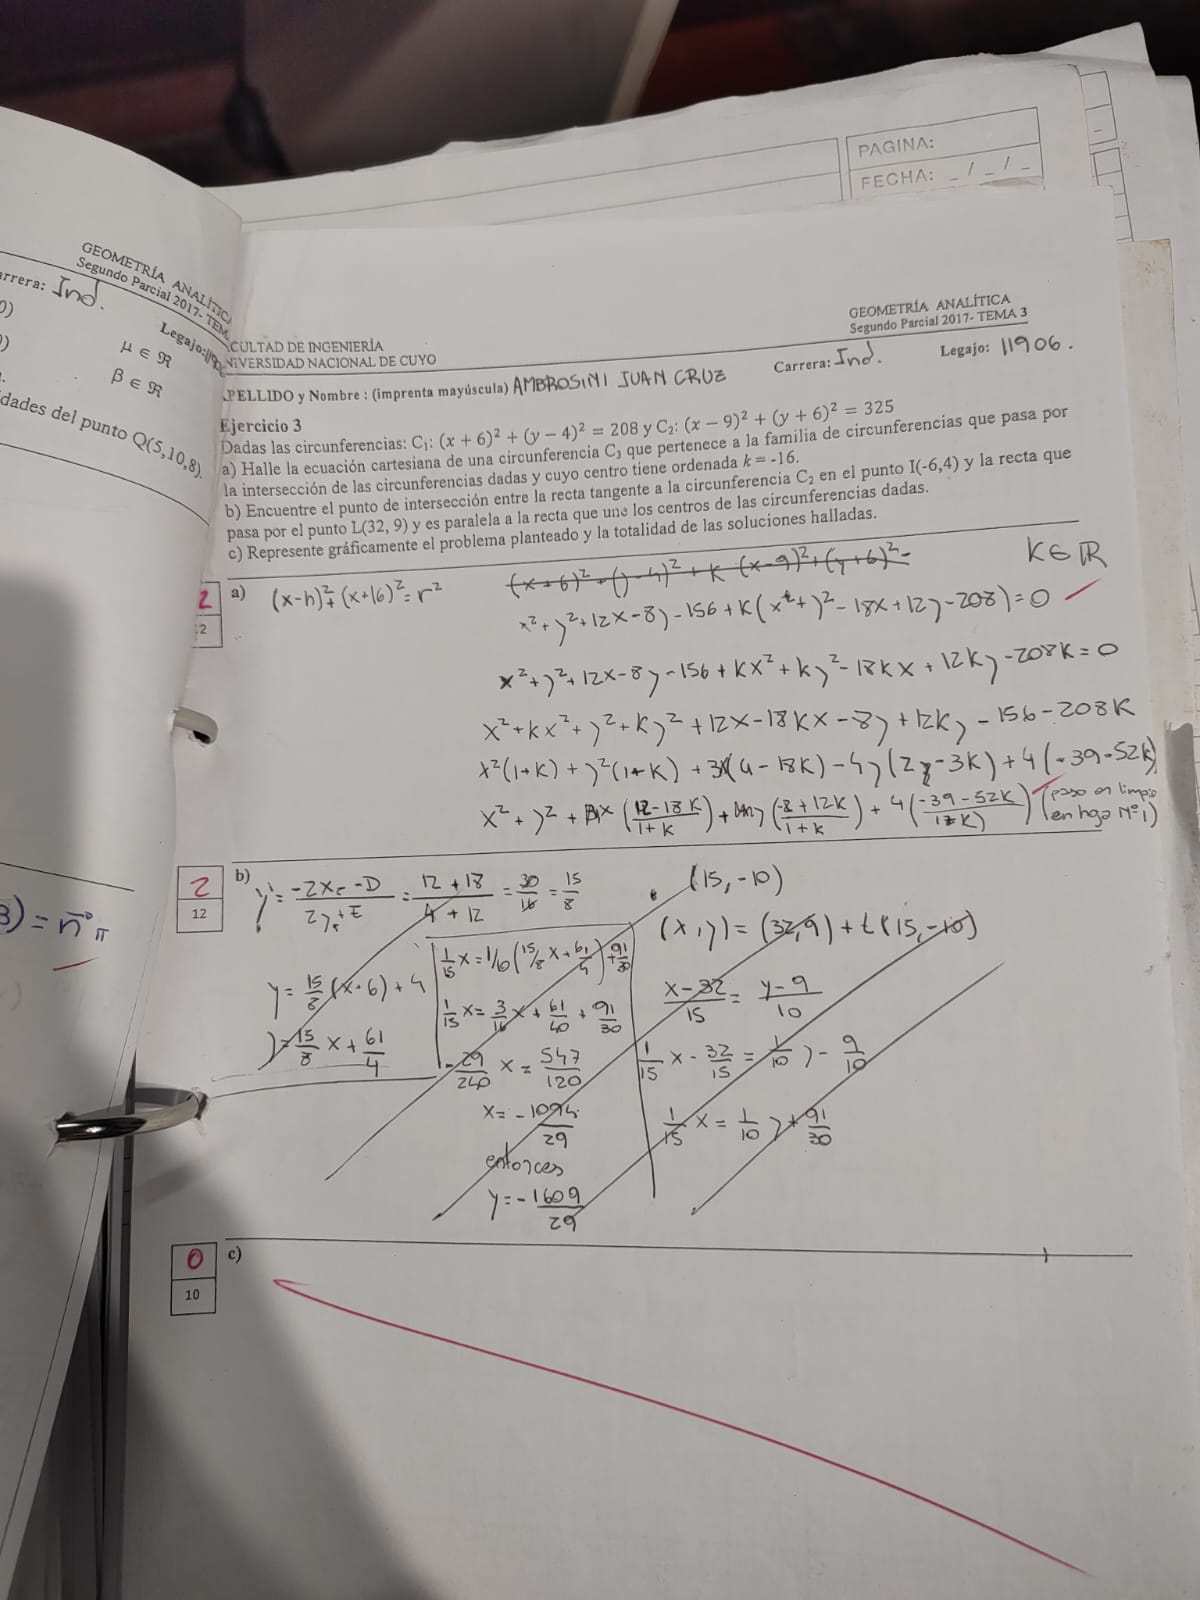 PAGINA:
FECHA: _ / _ / _
GEOMETRÍA ANALÍTIC
Segundo Parcial 2017- TEM
rrera: Ind.
Legajo:
μ ∈ ℜ
β ∈ ℜ
dades del punto Q(5,10,8).
= n π
CULTAD DE INGENIERÍA
NIVERSIDAD NACIONAL DE CUYO
GEOMETRÍA ANALÍTICA
Segundo Parcial 2017- TEMA 3
PELLIDO y Nombre : (imprenta mayúscula) AMBROSINI JUAN CRUZ
Carrera: Ind.
Legajo: 11906.
Ejercicio 3
Dadas las circunferencias: C₁: (x + 6)² + (y − 4)² = 208 y C₂: (x − 9)² + (y + 6)² = 325
a) Halle la ecuación cartesiana de una circunferencia C₃ que pertenece a la familia de circunferencias que pasa por
la intersección de las circunferencias dadas y cuyo centro tiene ordenada k = -16.
b) Encuentre el punto de intersección entre la recta tangente a la circunferencia C₂ en el punto I(-6,4) y la recta que
pasa por el punto L(32, 9) y es paralela a la recta que une los centros de las circunferencias dadas.
c) Represente gráficamente el problema planteado y la totalidad de las soluciones halladas.
2
a) (x-h)²+(x+16)²=r²
K∈ℝ
x²+y²+12x-8y-156+K(x²+y²-18x+12y-208)=0
x²+y²+12x-8y-156+Kx²+Ky²-18Kx+12Ky-208K=0
x²+Kx²+y²+Ky²+12x-18Kx-8y+12Ky-156-208K
x²(1+K)+y²(1+K)
+4(-39-52K)
x²+y²+ x (12-18K / 1+K)+ y (-8+12K / 1+K)+4(-39-52K / 1+K) (paso en limpio
en hoja N°1)
2
12
b) y'= -2x₀-D / 2y₀+E = 12+18 / 4+12 = 30/16 = 15/8
(15,-10)
(x,y)=(32,9)+t(15,-10)
1/15 x=1/10(15/8 x+61/4)+91/30
y=15/8(x+6)+4
x-32 / 15 = y-9 / 10
1/15 x=3/16 x+61/40+91/30
y=15/8 x+61/4
1/15 x-32/15=1/10 y-9/10
-29/240 x=547/120
x=-1094/29
1/15 x=1/10 y+91/30
entonces
y=-1609/29
0
10
c)